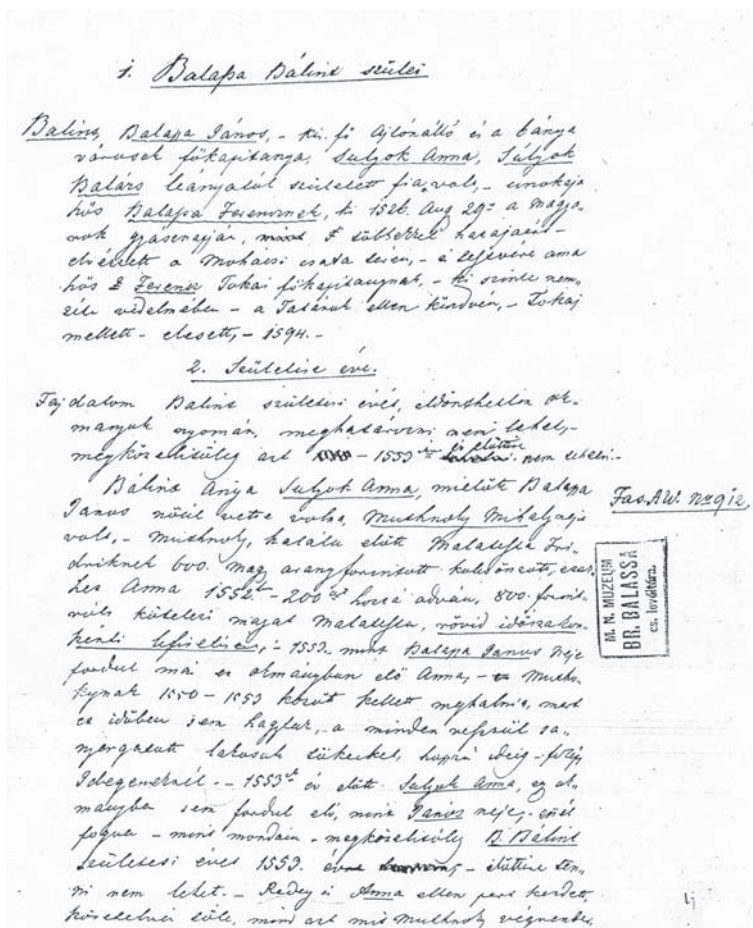 1. Balaſsa Bálint szülei
Balint, Balaſsa János, – kir. fő Ajtónálló és a bánya
városok főkapitánya, Sulyok Anna, Sulyok
Balázs leányától született fia, volt, – unokája
hős Balaſsa Ferencznek, ki 1526. Aug 29én a magya-
rok gyásznapján, többekkel hazájáért
elvérzett a Mohácsi csata téren, – és
hős Ferencz Tokai főkapitánynak, – ki szinte nem-
zete védelmében – a Tatárok ellen küzdvén, – Tokaj
mellett – elesett, – 1594. –
2. Születése éve.
Fájdalom Balint születési évét, ok-
mányok nyomán, meghatározni nem lehet, –
megközelitőleg azt – 1553 előttire nem tehetni. –
Bálint Anyja Sulyok Anna, mielőtt Balaſsa
János nőül vette volna, Muthnoky Mihály neje
volt, – Muthnoky, halála előtt Malateſta Fri-
driknek 600. magy arany forintott kölcsönzött,
Anna 1552 – 200 hozzá adván, 800. forint-
ról kötelezi magát Malateſta, rövid időszakon-
kénti lefizetésre, – 1553. mint Balaſsa János neje
fordul már az okmányban elő Anna, – Muthno-
kynak 1550 – 1553 között kellett meghalnia, mert
ez időben sem hagytak, – a minden
lakosok
Idegeneknél. – 1553 év előtt Sulyok Anna, egy ok-
mányba sem fordul elő, mint János neje, – ennél
fogva – mint mondám – megközelitőleg B. Bálint
születési évét 1553. – előttire ten-
ni nem lehet. – Rédey is Anna ellen pert kezdett,
követelvén tőle, mind azt mit Muthnoky végrende-
Fas. A W. No 912.
M. N. MUZEUM
BR. BALASSA
cs. levéltára.